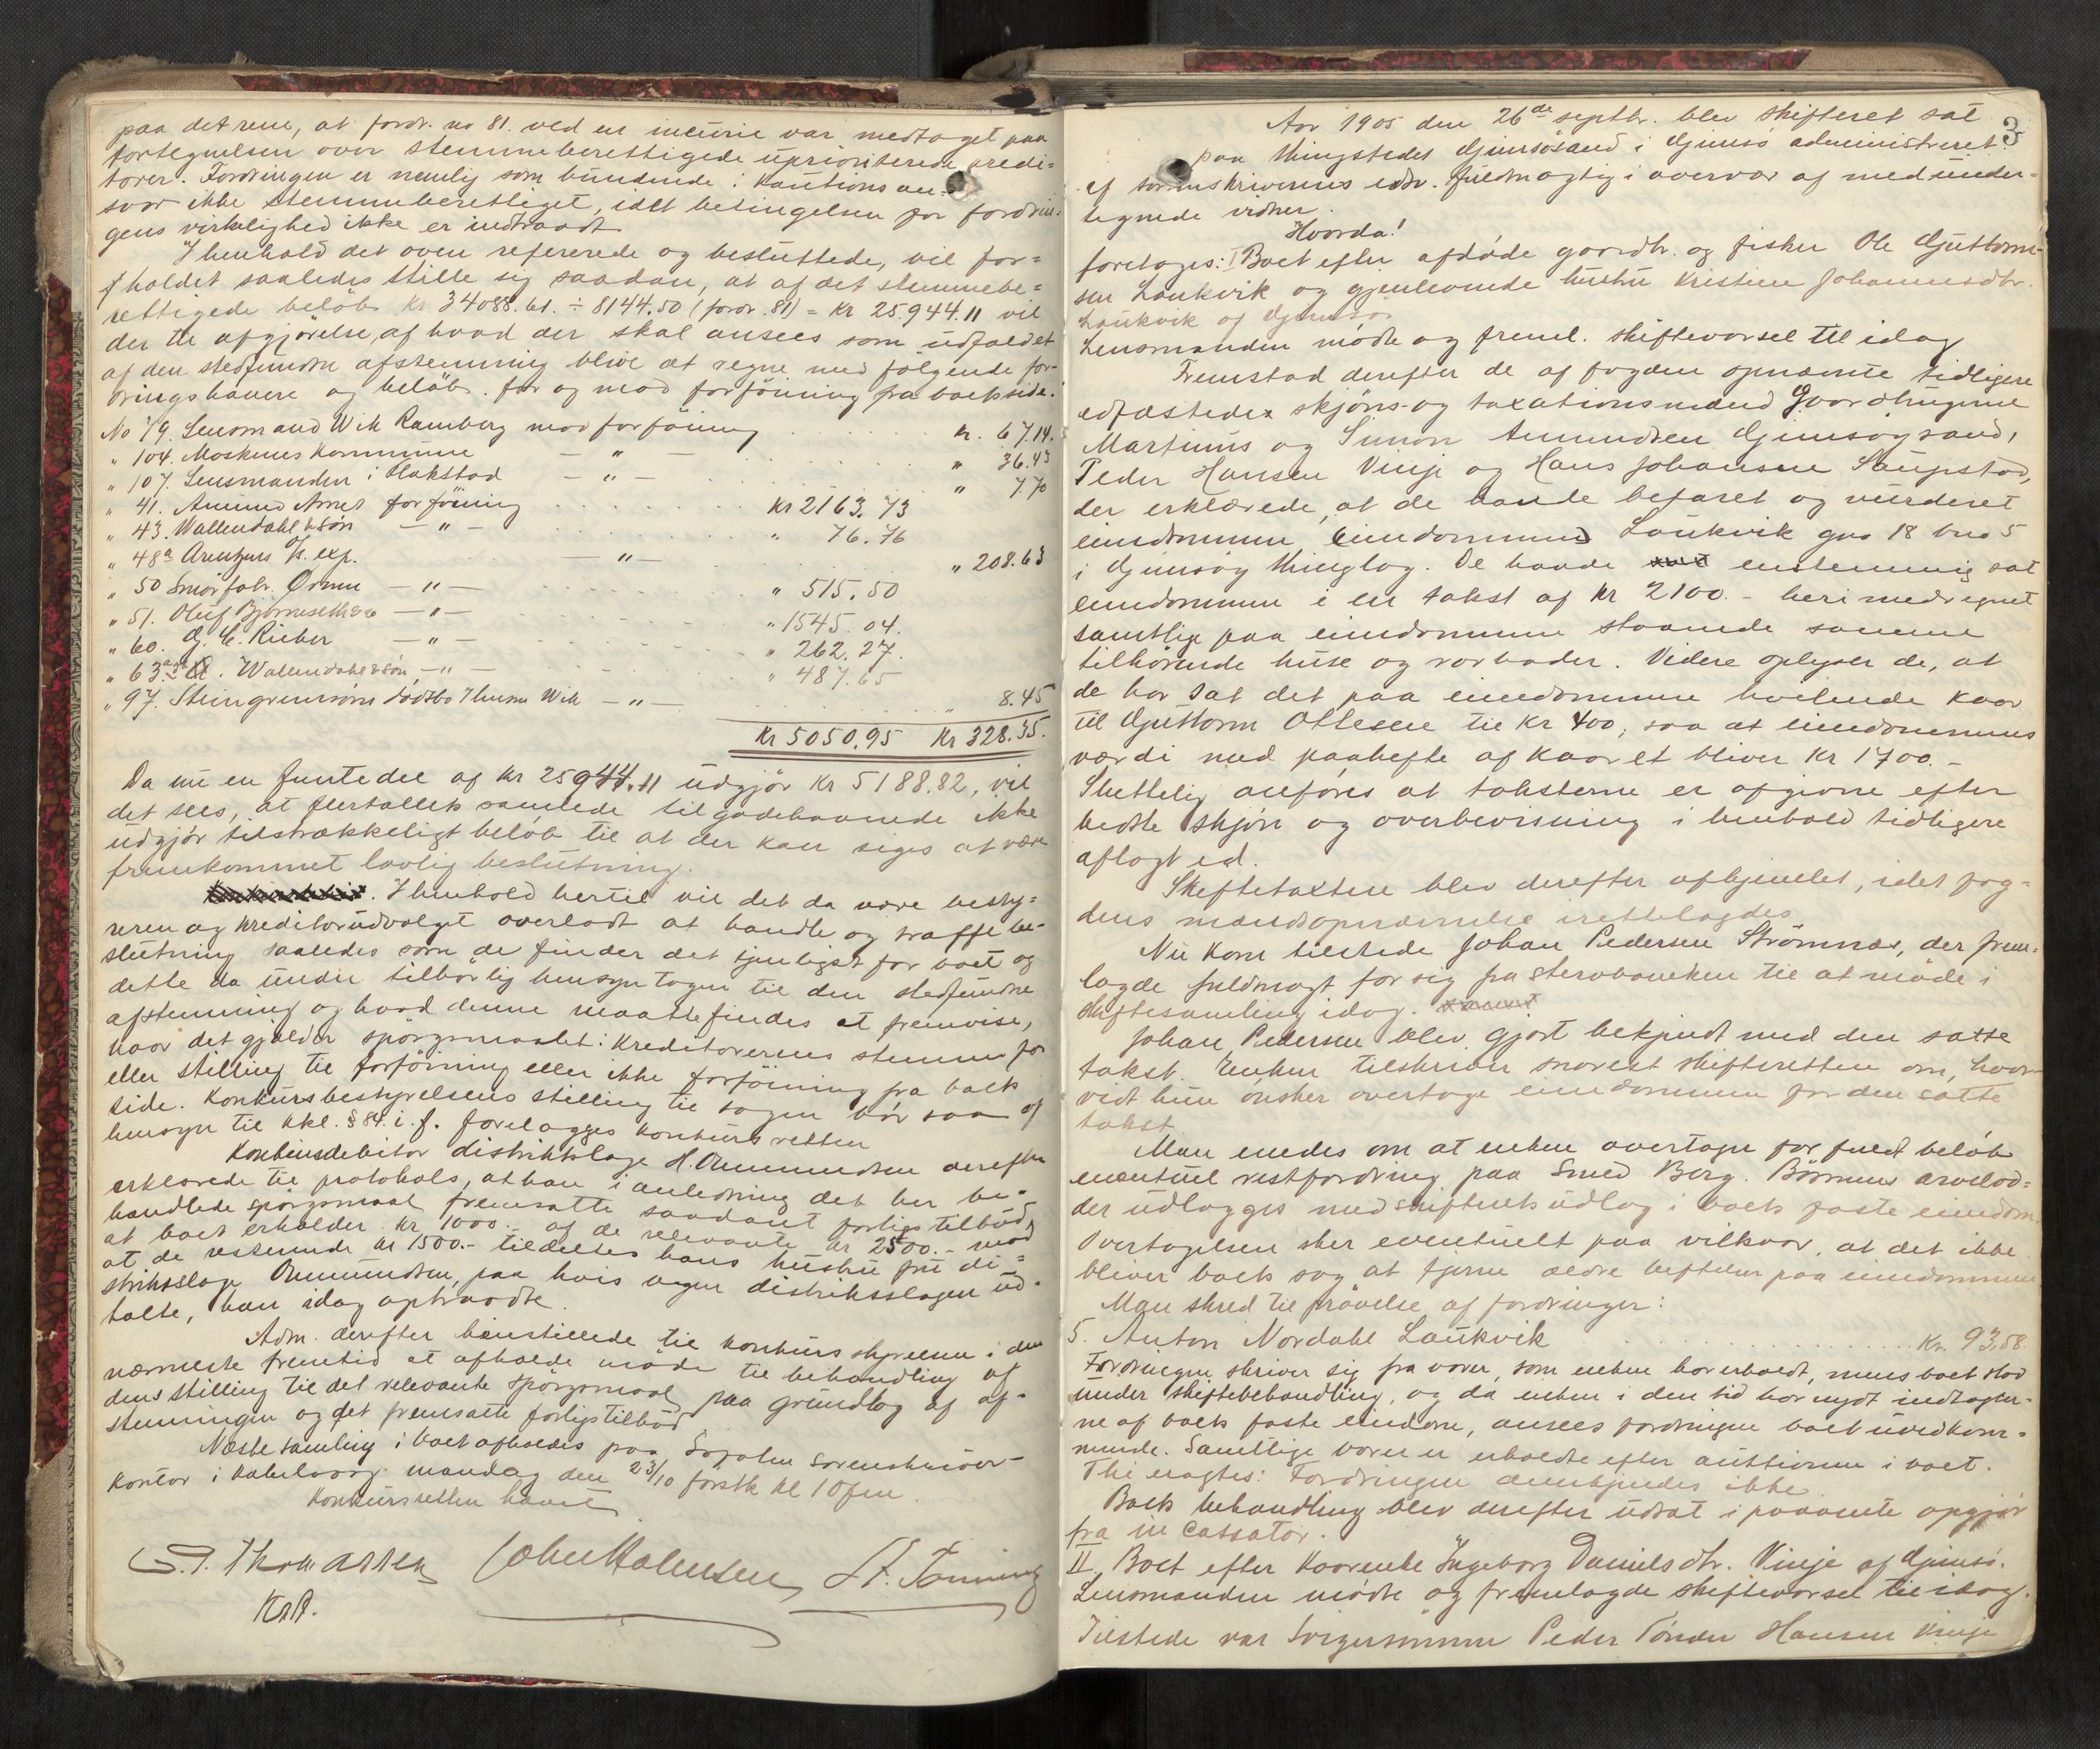 paa det rene, at fordr. no 81. ved en incurie var medtaget paa
fortegnelsen over stemmeberettigede uprioriterede kredi=
torer. Fordringen er nemlig som bundende i kautionsan-
svar ikke stemmeberettiget, idet betingelsen for fordrin-
gens virkelighed ikke er indtraadt.
I henhold det oven refererede og besluttede, vil for=
holdet saaledes stille sig saadan, at af det stemmebe=
rettigede beløb kr 34088.61. ÷ 8144.50 (fordr. 81) = kr 25.944.11 vil
der til afgjørelse af hvad der skal ansees som udfaldet
af den stedfundne afstemning blive at regne med følgende for-
dringshavere og beløb. for og mod forføining fra boets side.
No 79. Lensmand Wik Ramberg mod forføining kr. 67.14.
" 104. Moskenes kommune — " — " 36.43
" 107. Lensmanden i Hakstad — " — " 7.70
" 41. Amund Arnes for føining kr 2163.73
" 43. Wallendahl & søn — " — " 76.76
" 48a Arentzens — " — " 208.63
" 50 Smørfabr. Ørnen — " — " 515.50
" 51. Oluf Bjørneseth & Co — " — " 1545.04.
" 60. G. C. Rieber — " — " 262.27.
" 63. Wallendahl & søn — " — " 487.65
" 97. Steingrimsens dødsbo Wik — " — " 8.45
Kr 5050.95 Kr 328.35.
Da nu en femtedel af kr 25944.11 udgjør kr 5188.82, vil
det sees, at flertallets samlede tilgodehavende ikke
udgjør tilstrækkeligt beløb til at der kan siges at være
fremkommet lovlig beslutning.
I henhold hertil vil det da være besty=
reren og kreditorudvalget overladt at handle og træffe be-
slutning saaledes som de finder det tjenligst for boet og
dette da under tilbørlig hensyn tagen til den stedfundne
afstemning og hvad denne maatte findes at fremvise,
naar det gjælder spørgsmaalet: kreditorernes stemme for
eller stilling til forføining eller ikke forføining fra boets
side. Konkursbestyrelsens stilling til sagen bør saa af
hensyn til kkl. § 84. i. f. forelægges konkursretten
Konkursdebitor distriktslæge H. Ommundsen derefter
erklærede til protokols, at han i anledning det her be-
handlede spørgsmaal fremsatte saadant forligstilbud,
at boet erholder kr 1000.- af de relevante kr 2500.- mod
at de resterende kr 1500.- tildeltes hans hustru fru di=
striktslæge Ommundsen, paa hvis vegne distriktslægen ud-
talte, han idag optraadte.
Adm. derefter henstillede til konkursstyrelsen i den
nærmeste fremtid at afholde møde til behandling af
dens stilling til det relevante spørgsmaal paa grundlag af af-
stemningen og det fremsatte forligstilbud
Næste samling i boet afholdes paa Lofoten sorenskriver-
kontor i Kabelvaag mandag den 23/10 førstk kl 10 fm.
Konkursretten hævet
G. Thomassen John Malmsen A. Tønning
Kst.
3
Aar 1905 den 26de septbr. blev skifteret sat
paa thingstedet Gimsøsand i Gimsø administreret
af sorenskriverens edsv. fuldmægtig i overvær af medunder-
tegnede vidner.
Hvorda!
foretoges: I Boet efter afdøde gaardbr. og fisker Ole Guttorm-
sen Laukvik og gjenlevende hustru Kristine Johannesdtr.
Laukvik af Gimsø.
Lensmanden mødte og freml. skiftevarsel til idag
Fremstod derefter de af fogden opnævnte tidligere
edfæstede skjøns- og taxationsmænd Gaardbrugerne
Martinus og Simon Amundsen Gimsøysand,
Peder Hansen Vinje og Hans Johansen Saupstad,
der erklærede, at de havde befaret og vurderet
eiendommen eiendommen Laukvik gno 18 bno 5
i Gimsøy thinglag. De havde enstemmig sat
eiendommen i en takst af kr 2100.- heri medregnet
samtlige paa eiendommen staaende samme
tilhørende huse og rorboder. Videre oplyser de, at
de har sat det paa eiendommen hvilende kaar
til Guttorm Ottesen til kr 400, saa at eiendommens
værdi med paahefte af kaaret bliver kr 1700.-
Sluttelig anføres at taksterne er afgivne efter
bedste skjøn og overbevisning i henhold tidligere
aflagt ed.
Skiftetaxten blev derefter afhjemlet, idet fog-
dens mandsopnævnelse irettelagdes
Nu kom tilstede Johan Pedersen Strømnæs, der frem-
lagde fuldmagt for sig fra stervboenken til at møde i
skiftesamling idag.
Johan Pedersen blev gjort bekjendt med den satte
takst. Enken tilskriver snarest skifteretten om, hvor-
vidt hun ønsker overtage eiendommen for den satte
takst.
Man enedes om at enken overtager for fuldt beløb
eventuel restfordring paa Smed Berg. Børnenes arvelod-
der udlægges med skifterets udlæg i boets faste eiendom.
Overtagelsen sker eventuelt paa vilkaar, at det ikke
bliver boets sag at fjerne ældre heftelser paa eiendommen
Man skred til prøvelse af fordringer:
5. Anton Nordahl Laukvik kr. 93.58.
Fordringen skriver sig fra varer, som enken har erholdt, mens boet stod
under skiftebehandling, og da enken i den tid har nydt indtægter-
ne af boets faste eiendom, ansees fordringen boet uvedkom-
mende. Samtlige varer er erholdte efter auktionen i boet.
Thi eragtes: Fordringen anerkjendes ikke.
Boets behandling blev derefter udsat i paavente opgjør
fra incassator.
II. Boet efter kaarenke Ingeborg Danielsdtr. Vinje af Gimsø.
Lensmanden mødte og fremlagde skiftevarsel til idag.
Tilstede var svigersønnen Peder Tønder Hansen Vinje